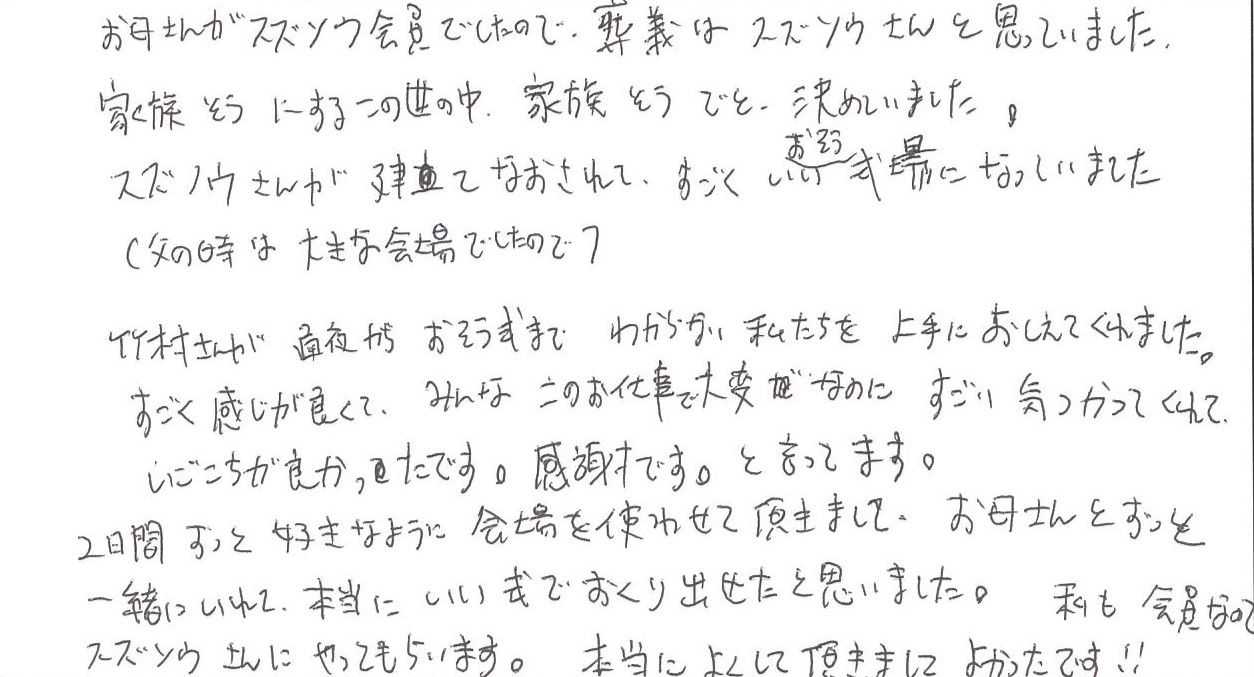 お母さんがスズソウ会員でしたので、葬義は スズソウさんと思っていました、
家族そう にするこの世の中、家族そうでと、決めていました。
スズソウさんが 建直てなおされて、すごく いい おそう式場になっていました
(父の時は 大きな会場でしたので)
竹村さんが 通夜から おそう式まで わからない 私たちを 上手におしえてくれました。
すごく感じが良くて、みんな このお仕事で大変なのに すごい 気つかってくれて、
いごこちが良かったです。感謝です。と言ってます。
2日間 ずっと 好きなように 会場を使わせて頂きまして、お母さんとずっと
一緒にいれて、本当に いい式でおくり出せたと思いました。 私も 会員なので
スズソウ さんに やってもらいます。 本当に よくして頂きまして よかったです!!